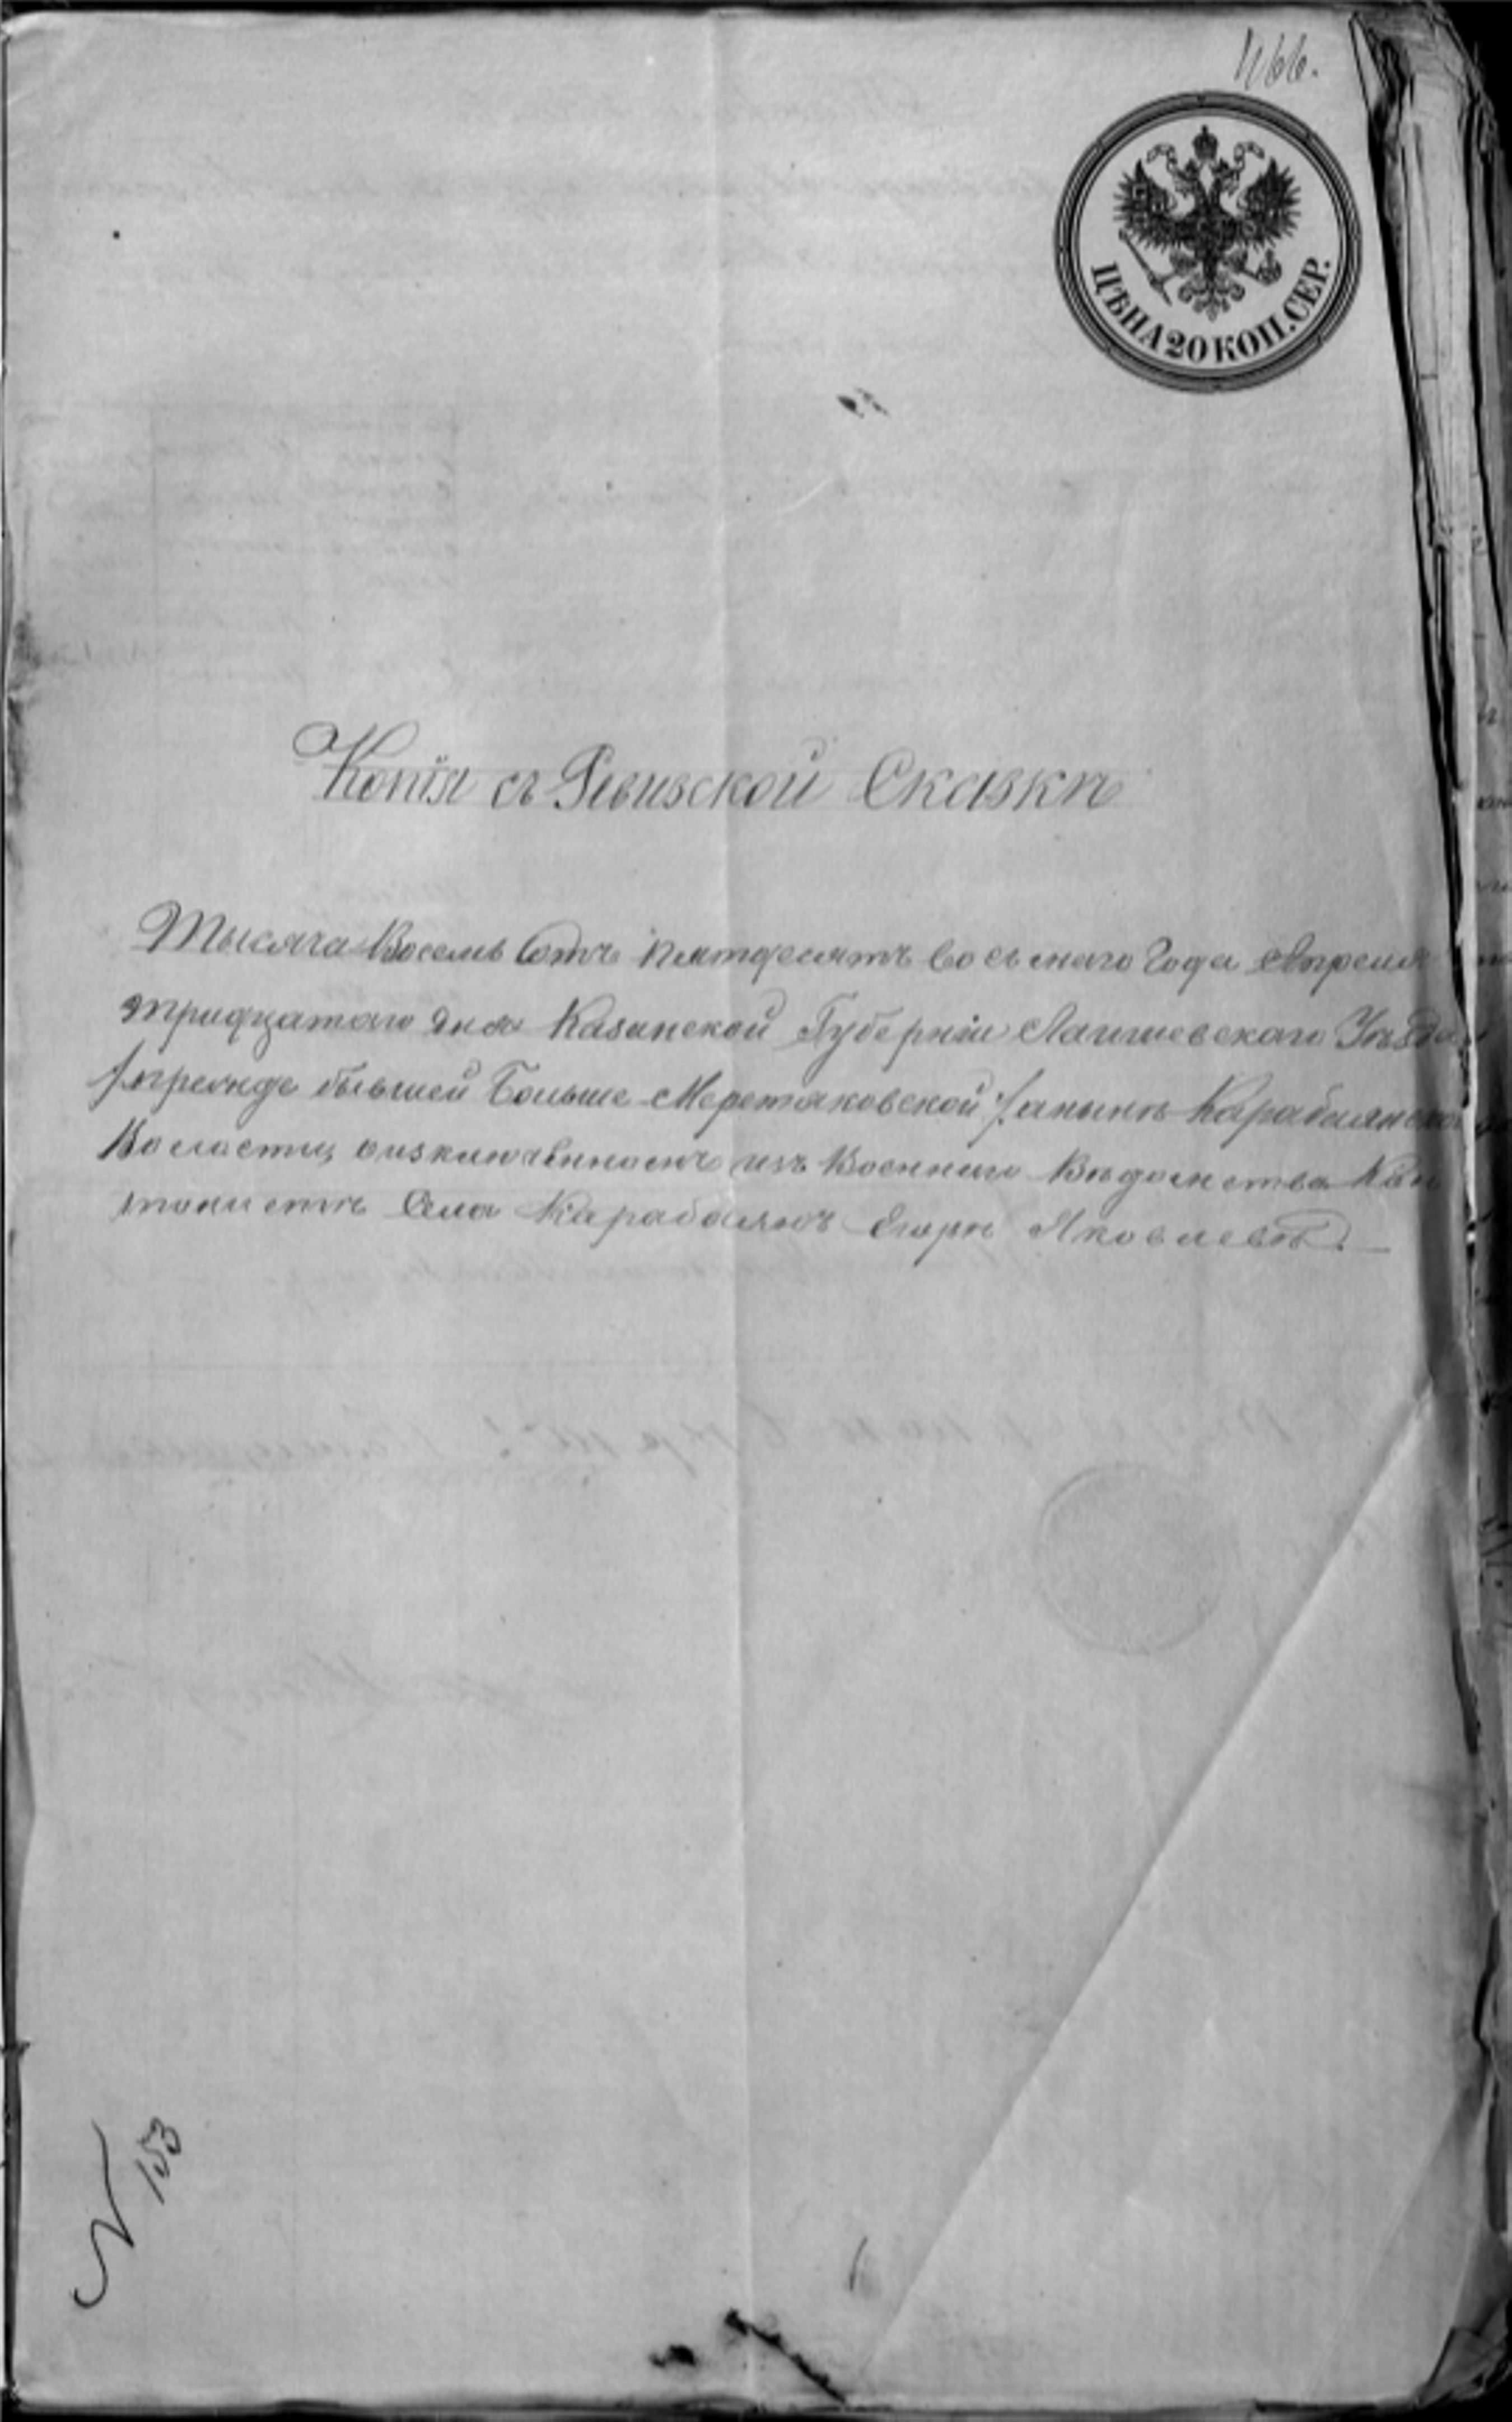 466.
ЦѢНА 20 КОП. СЕР.
Копія съ Ревизской Сказки
Тысяча Восемь Сотъ пятдесятъ восьмаго Года Апреля
тридцатаго дня Казанской Губерніи Лаишевскаго Уѣзда
/:прежде бывшей Больше Меретяковской:/ а нынѣ Караболянской
Волости, о изключенномъ изъ Военнаго Вѣдомства Кан
тонистѣ Села Караболянъ Егорѣ Яковлевѣ.
N 153